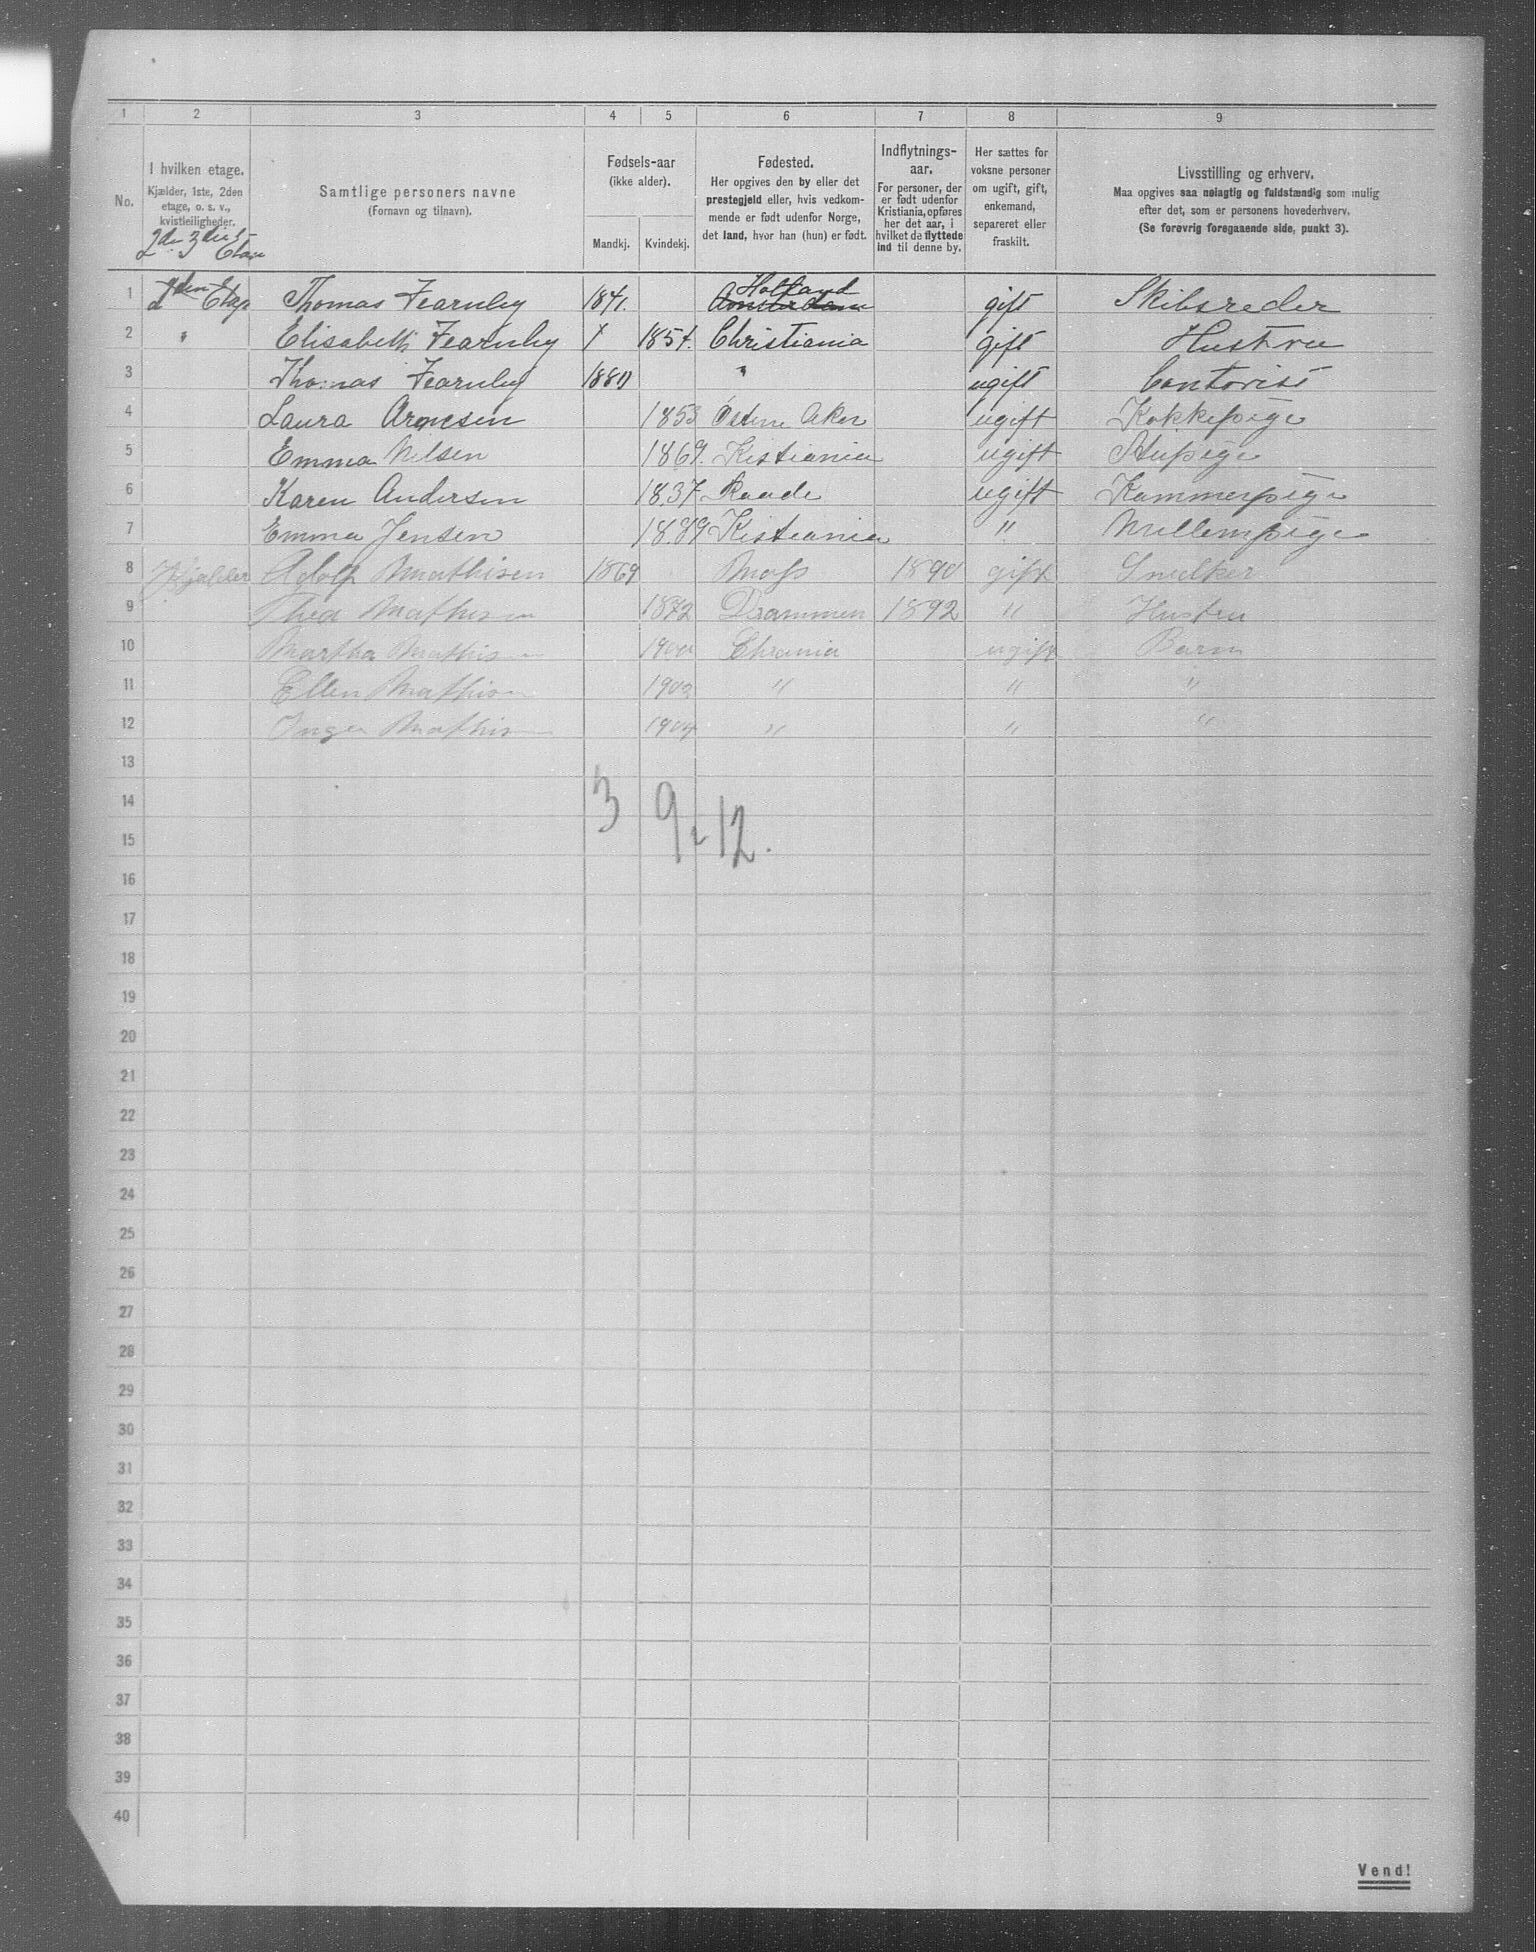 1 2 3 4 5 6 7 8 9
No.
I hvilken etage.
Kjælder, 1ste, 2den
etage, o. s. v.,
kvistleiligheder.
2de 3die
Etage
Samtlige personers navne
(Fornavn og tilnavn).
Fødsels-aar
(ikke alder).
Mandkj. Kvindekj.
Fødested.
Her opgives den by eller det
prestegjeld eller, hvis vedkom-
mende er født udenfor Norge,
det land, hvor han (hun) er født.
Indflytnings-
aar.
For personer, der
er født udenfor
Kristiania, opføres
her det aar, i
hvilket de flyttede
ind til denne by.
Her sættes for
voksne personer
om ugift, gift,
enkemand,
separeret eller
fraskilt.
Livsstilling og erhverv.
Maa opgives saa nøiagtig og fuldstændig som mulig
efter det, som er personens hovederhverv.
(Se forøvrig foregaaende side, punkt 3).
Holland
1 2den Etage Thomas Fearnley 1841. Amsterdam gift Skibsreder
2 " Elisabeth Fearnley 1854. Christiania gift Hustru
3 Thomas Fearnley 1880 " ugift Contorist
4 Laura Arnesen 1853 Østre Aker ugift Kokkepige
5 Emma Nilsen 1869. Kistiania ugift Stupige
6 Karen Andersen 1837. Raade ugift Kammerpige
7 Emma Jensen 1889 Kistiania " Mellempige
8 Kjælder Adolf Mathisen 1869 Moss 1890 gift Snedker
9 Thea Mathisen 1872 Drammen 1892 " Hustru
10 Martha Mathisen 1900 Chrania ugift Barn
11 Ellen Mathisen 1902 " " "
12 Inga Mathisen 1904 " " "
13
14 3 9 = 12.
15
16
17
18
19
20
21
22
23
24
25
26
27
28
29
30
31
32
33
34
35
36
37
38
39
40
Vend!